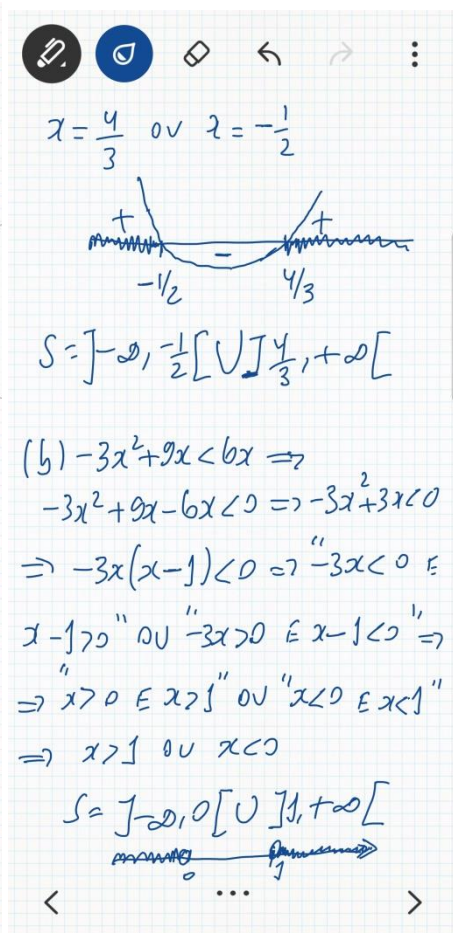 x = 4/3 ou x = -1/2
+ - +
-1/2 4/3
S = ]-∞, -1/2[ U ]4/3, +∞[
(b) -3x²+9x<6x ⇒
-3x²+9x-6x<0 ⇒ -3x²+3x<0
⇒ -3x(x-1)<0 ⇒ "-3x<0 E
x-1>0" OU "-3x>0 E x-1<0" ⇒
⇒ "x>0 E x>1" OU "x<0 E x<1"
⇒ x>1 OU x<0
S = ]-∞,0[ U ]1,+∞[
0 1